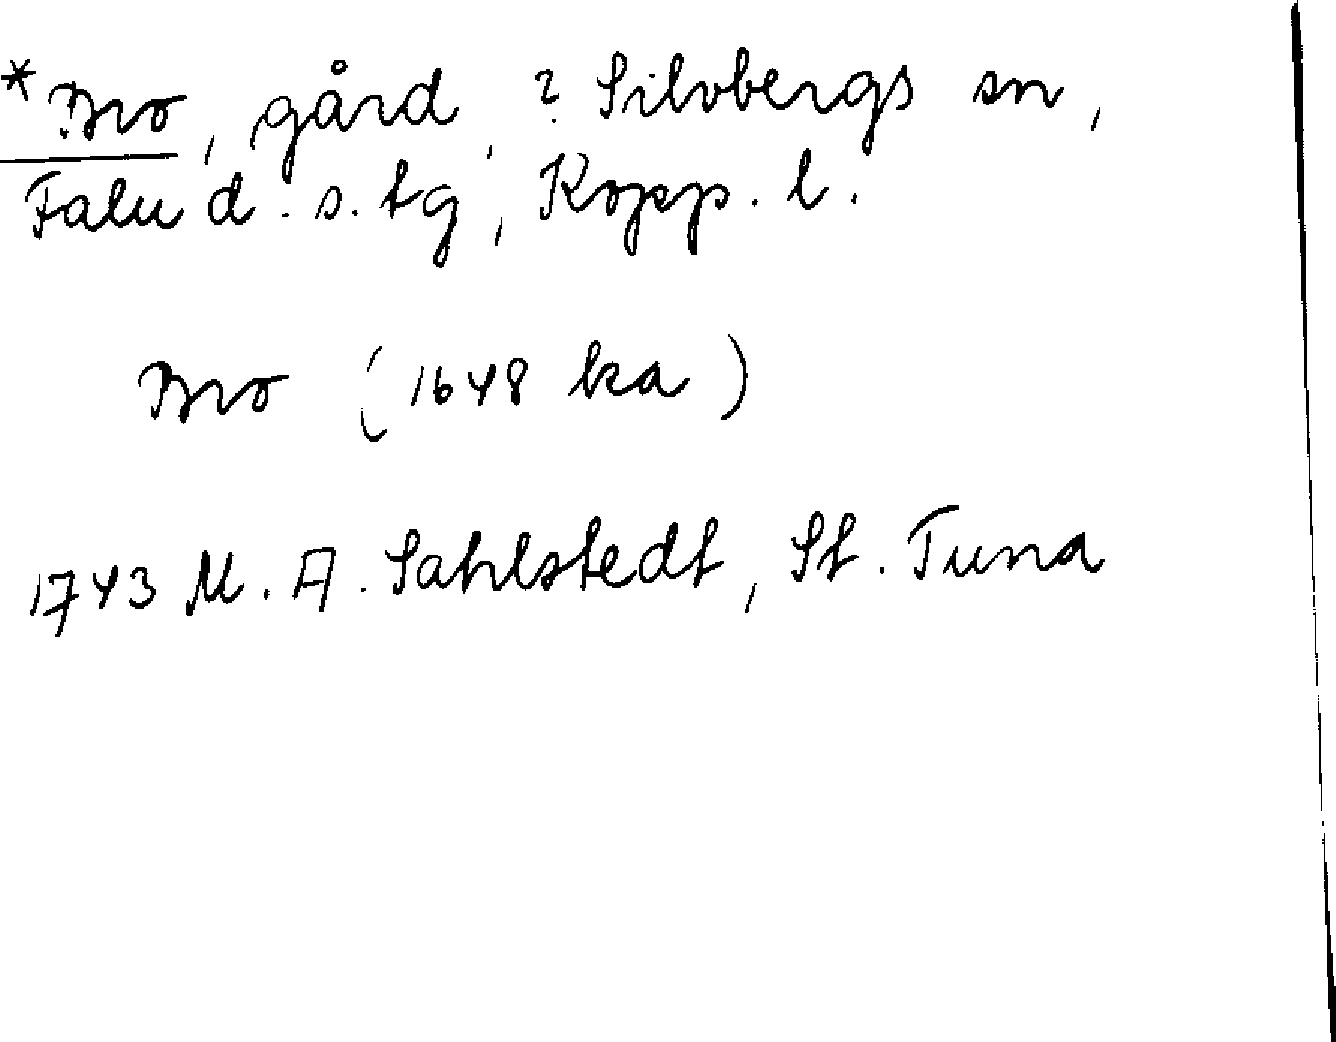 *Bro, gård, ? Silvbergs sn,
Falu d. s. tg, Kopp. l.
Bro (1648 ka)
1743 M. A. Sahlstedt, St. Tuna